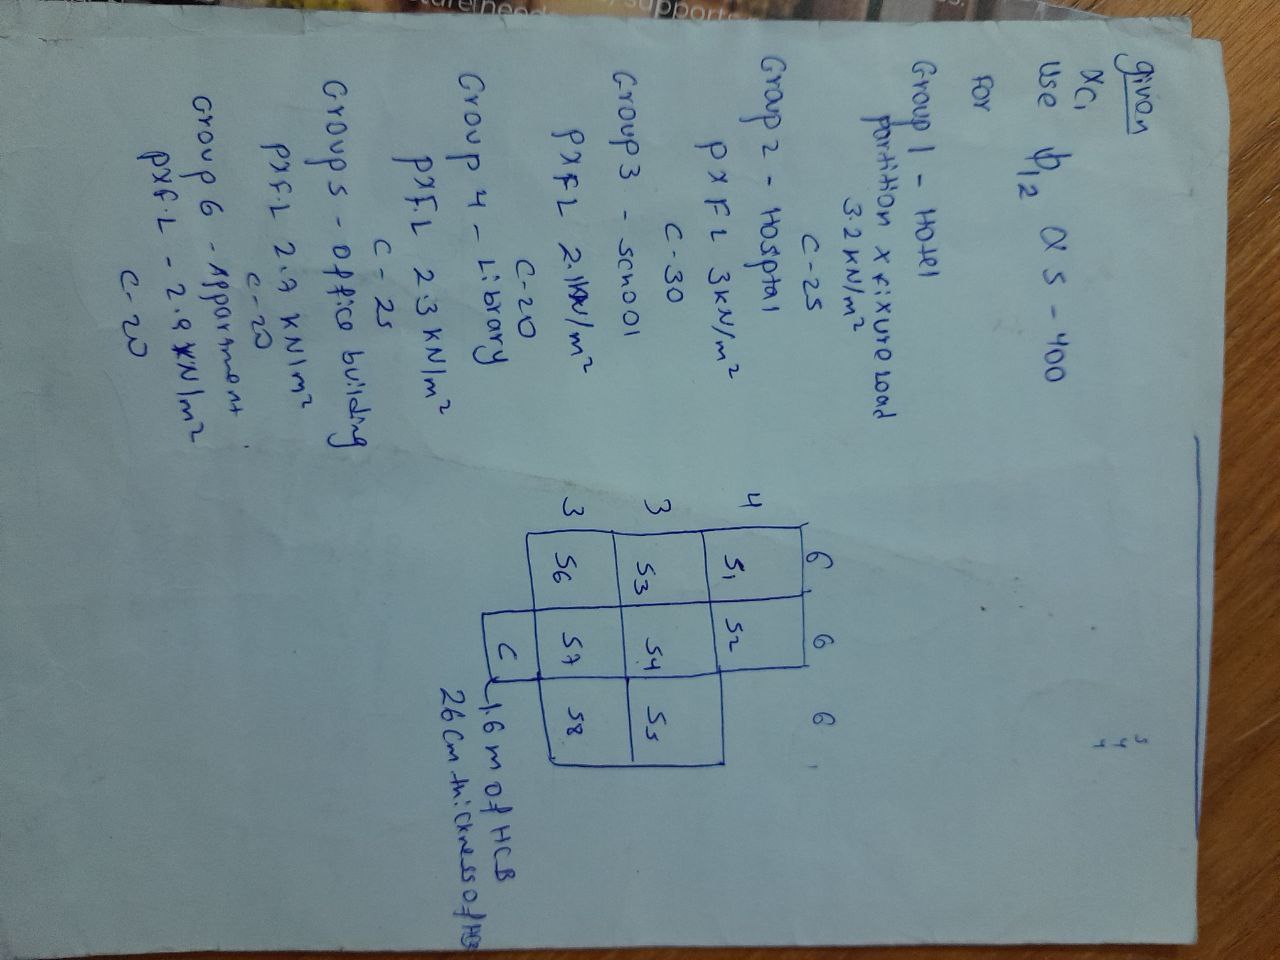 given
XC1
Use ϕ12 & S-400
For
Group 1 - Hotel
partition & fixture load
3.2 kN/m²
C-25
Group 2 - Hosptal
P & F L 3 kN/m²
C-30
Group 3 - School
P & F L 2.1 kN/m²
C-20
Group 4 - Library
P & F.L 2.3 kN/m²
C-25
Group 5 - office building
P & F.L 2.7 kN/m²
C-20
Group 6 - Appartment
P & F.L - 2.9 kN/m²
C-20
6 6 6
4 S1 S2
3 S3 S4 S5
3 S6 S7 S8
C
1.6 m of HCB
26 cm thickness of HCB